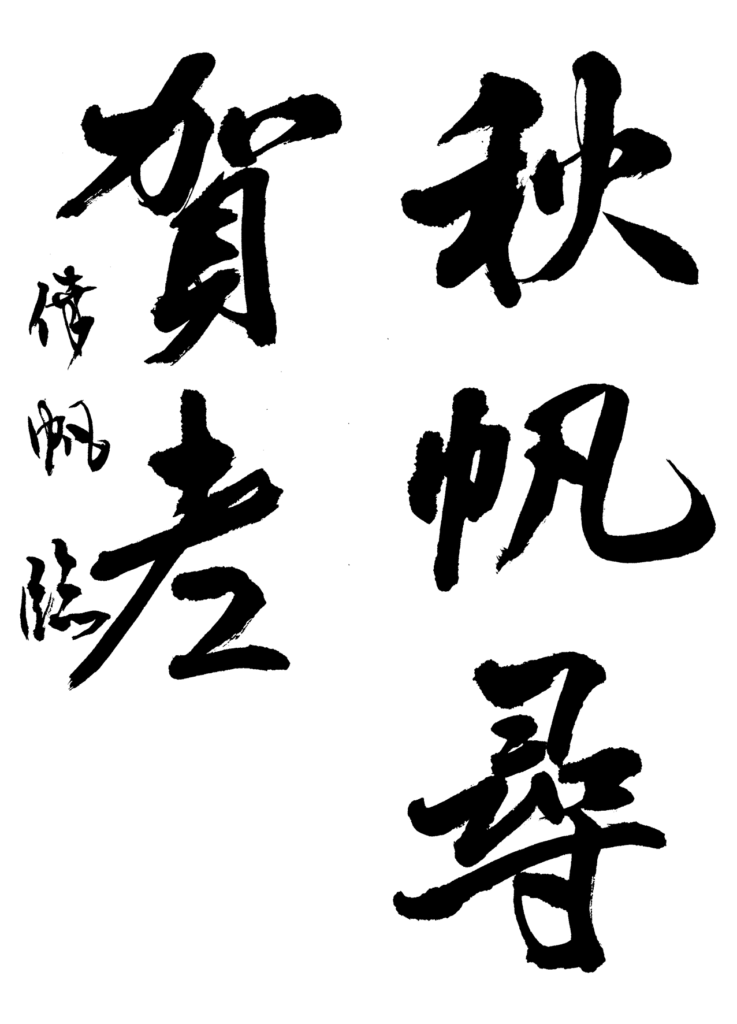 秋帆尋
賀老
帆臨